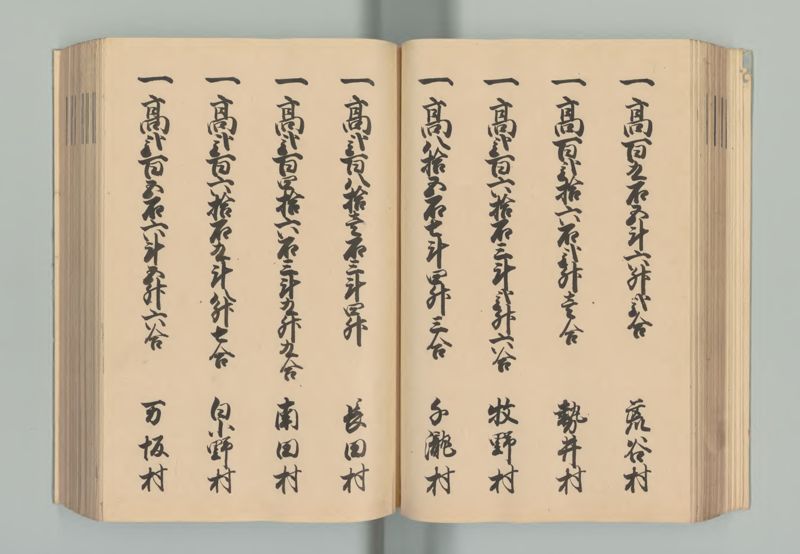 一高百九石五斗六升弐合 荒谷村
一高百弐拾六石弐升壱合 勢井村
一高弐百六拾石三斗弐升六合 牧野村
一高八拾五石七斗四升三合 小瀧村
一高弐百八拾壱石三斗四升 長田村
一高弐百四拾六石三斗九升九合 南田村
一高弐百六拾石九斗八升七合 臼野村
一高弐百五石六斗五升六合 万坂村